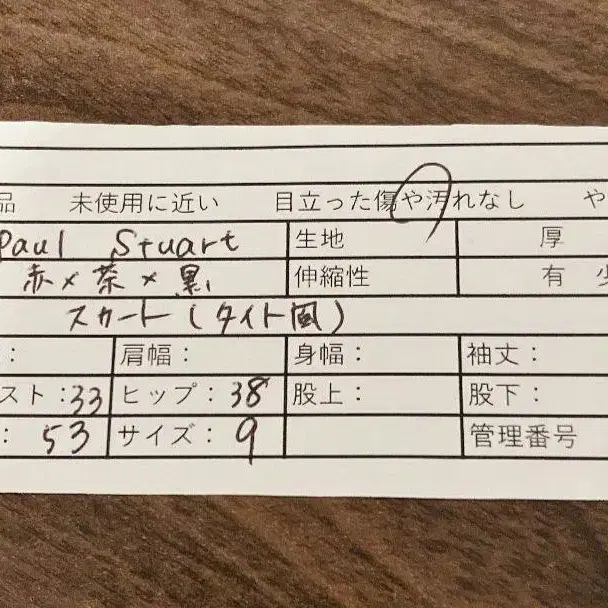 品 未使用に近い 目立った傷や汚れなし や
Paul Stuart 生地 厚
赤×茶×黒 伸縮性 有 少
スカート(タイト風)
: 肩幅: 身幅: 袖丈:
スト:33 ヒップ:38 股上: 股下:
: 53 サイズ: 9 管理番号